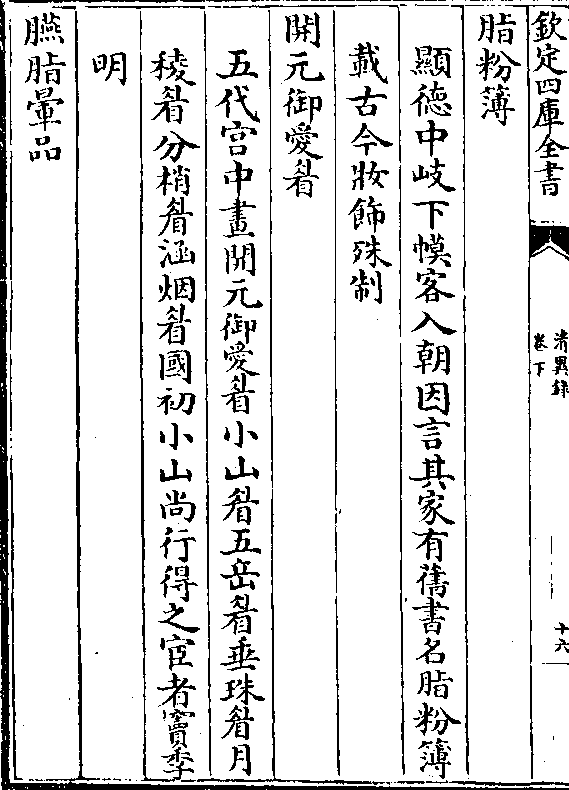 欽定四庫全書
清異錄
卷下
十六
脂粉簿
顯德中岐下幙客入朝因言其家有舊書名脂粉簿
載古今妝飾殊制
開元御愛眉
五代宫中畫開元御愛眉小山眉五岳眉垂珠眉月
稜眉分梢眉涵烟眉國初小山尚行得之宦者竇季
明
臙脂暈品